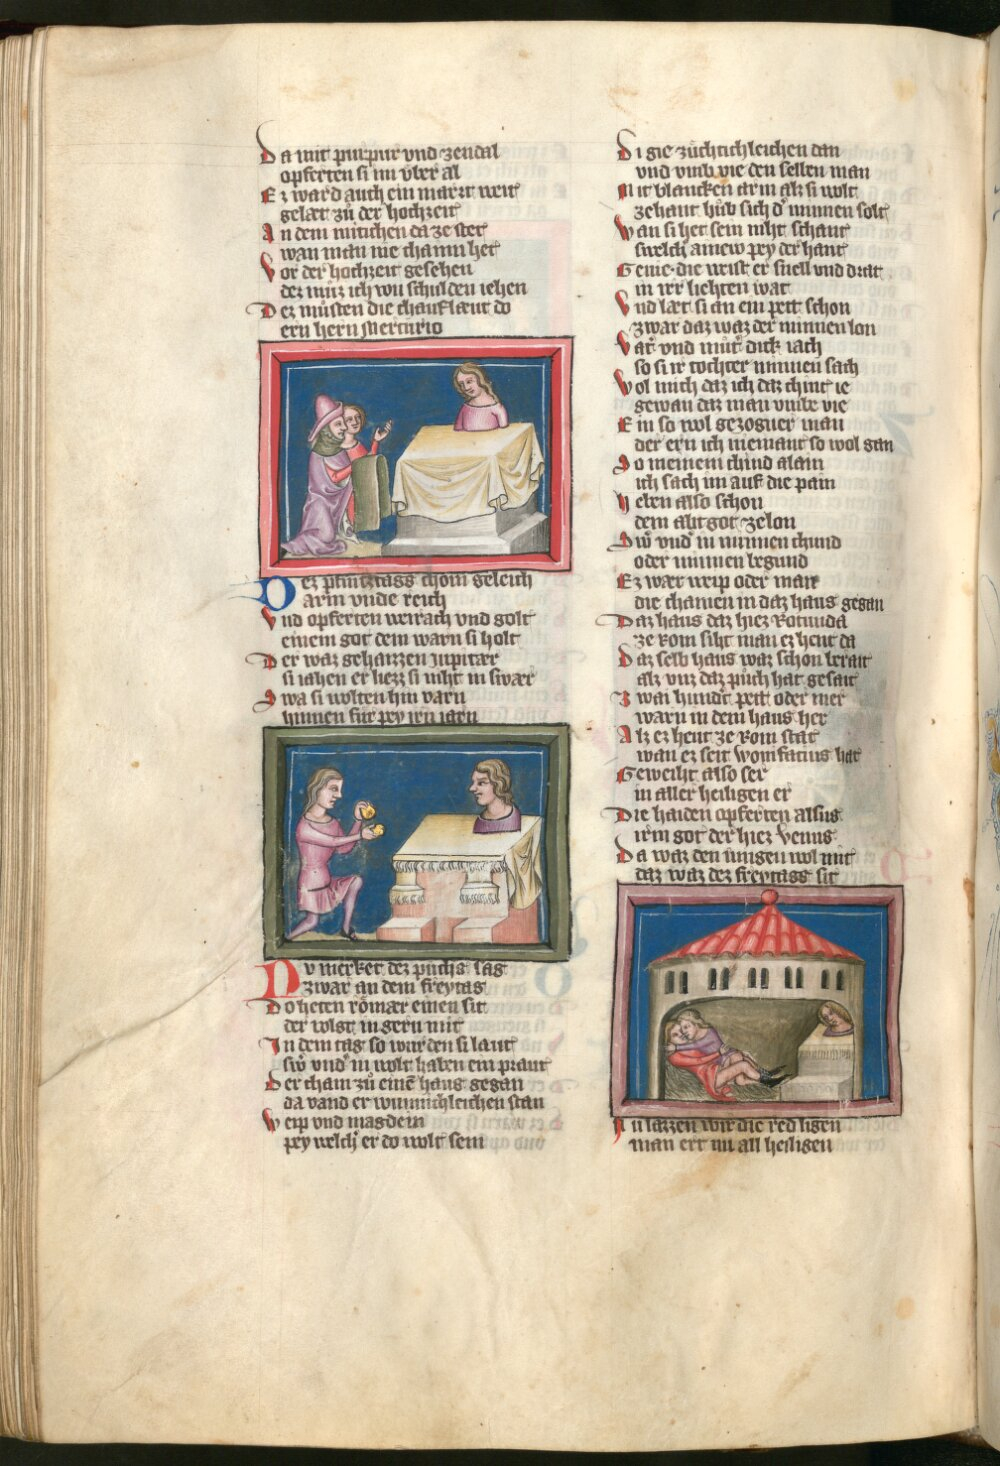 Da mit purpur vnd zendal
opferten si im vber al
Ez ward auch ein marct weit
gelaet zů der hochzeit
An dem mitichen da ze stet
wan man nie chainn het
Vor der hochzeit gesehen
dez můz ich von schulden iehen
Dez můsten die chauflaeut do
ern hern Mercurio
Dez pfincztags chom geleich
arm vnde reich
Vnd opferten weirach vnd golt
einem got dem warn si holt
Der waz gehaizzen Jupiter
si iahen er liezz si niht in swaer
Swa si wolten hin varn
hinnen fur pey irn iarn
Nv merket dez půchs sag
zwar an dem freytag
Do heten römaer einen sit
der volgt in gern mit
In dem tag so warden si laut
swer vnder in wolt haben ein praut
Der cham zů einem haus gegan
da vand er wunnichleichen stan
Weip vnd magdein
pey welcher er do wolt sein
Di gie zůchtichleichen dan
vnd vmb vie den selben man
Mit blancken arm alz si wolt
zehant hůb sich der minnen solt
Wan si het sein niht schant
swelch amew pey der hant
Genie die weist er snell vnd drat
in irr liehten wat
Vnd laet si an ein pett schon
zwar daz waz der minnen lon
Vater vnd můter dick iach
so si ir tochter minnen sach
Wol mich daz ich daz chint ie
gewan daz man vmbe vie
Ein so wol gezogner man
der ern ich niemant so wol gan
So meinem chind alain
ich sach im auf die pain
Heben also schon
dem abtgot zelon
Swer vnder in minnen chund
oder minnen begund
Ez waer weip oder man
die chamen in daz haus gegan
Daz haus daz hiez Rotunda
ze Rom siht man ez heut da
Daz selb haus waz schon berait
alz vnz daz půch hat gesait
Zwai hundert pett oder mer
warn in dem haus her
Alz ez heut ze Rom stat
wan ez seit Wonifatius hat
Geweiht also ser
in aller heiligen er
Die haiden opferten alsus
irm got der hiez Venus
Da waz den iungen wol mit
daz waz dez freytags sit
Nu lazzen wir die red ligen
man ert nu all heiligen